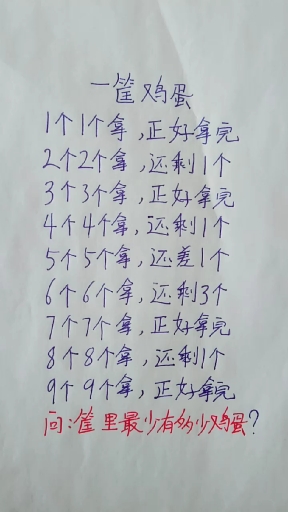 一筐鸡蛋
1个1个拿,正好拿完
2个2个拿,还剩1个
3个3个拿,正好拿完
4个4个拿,还剩1个
5个5个拿,还差1个
6个6个拿,还剩3个
7个7个拿,正好拿完
8个8个拿,还剩1个
9个9个拿,正好拿完
问:筐里最少有多少鸡蛋?